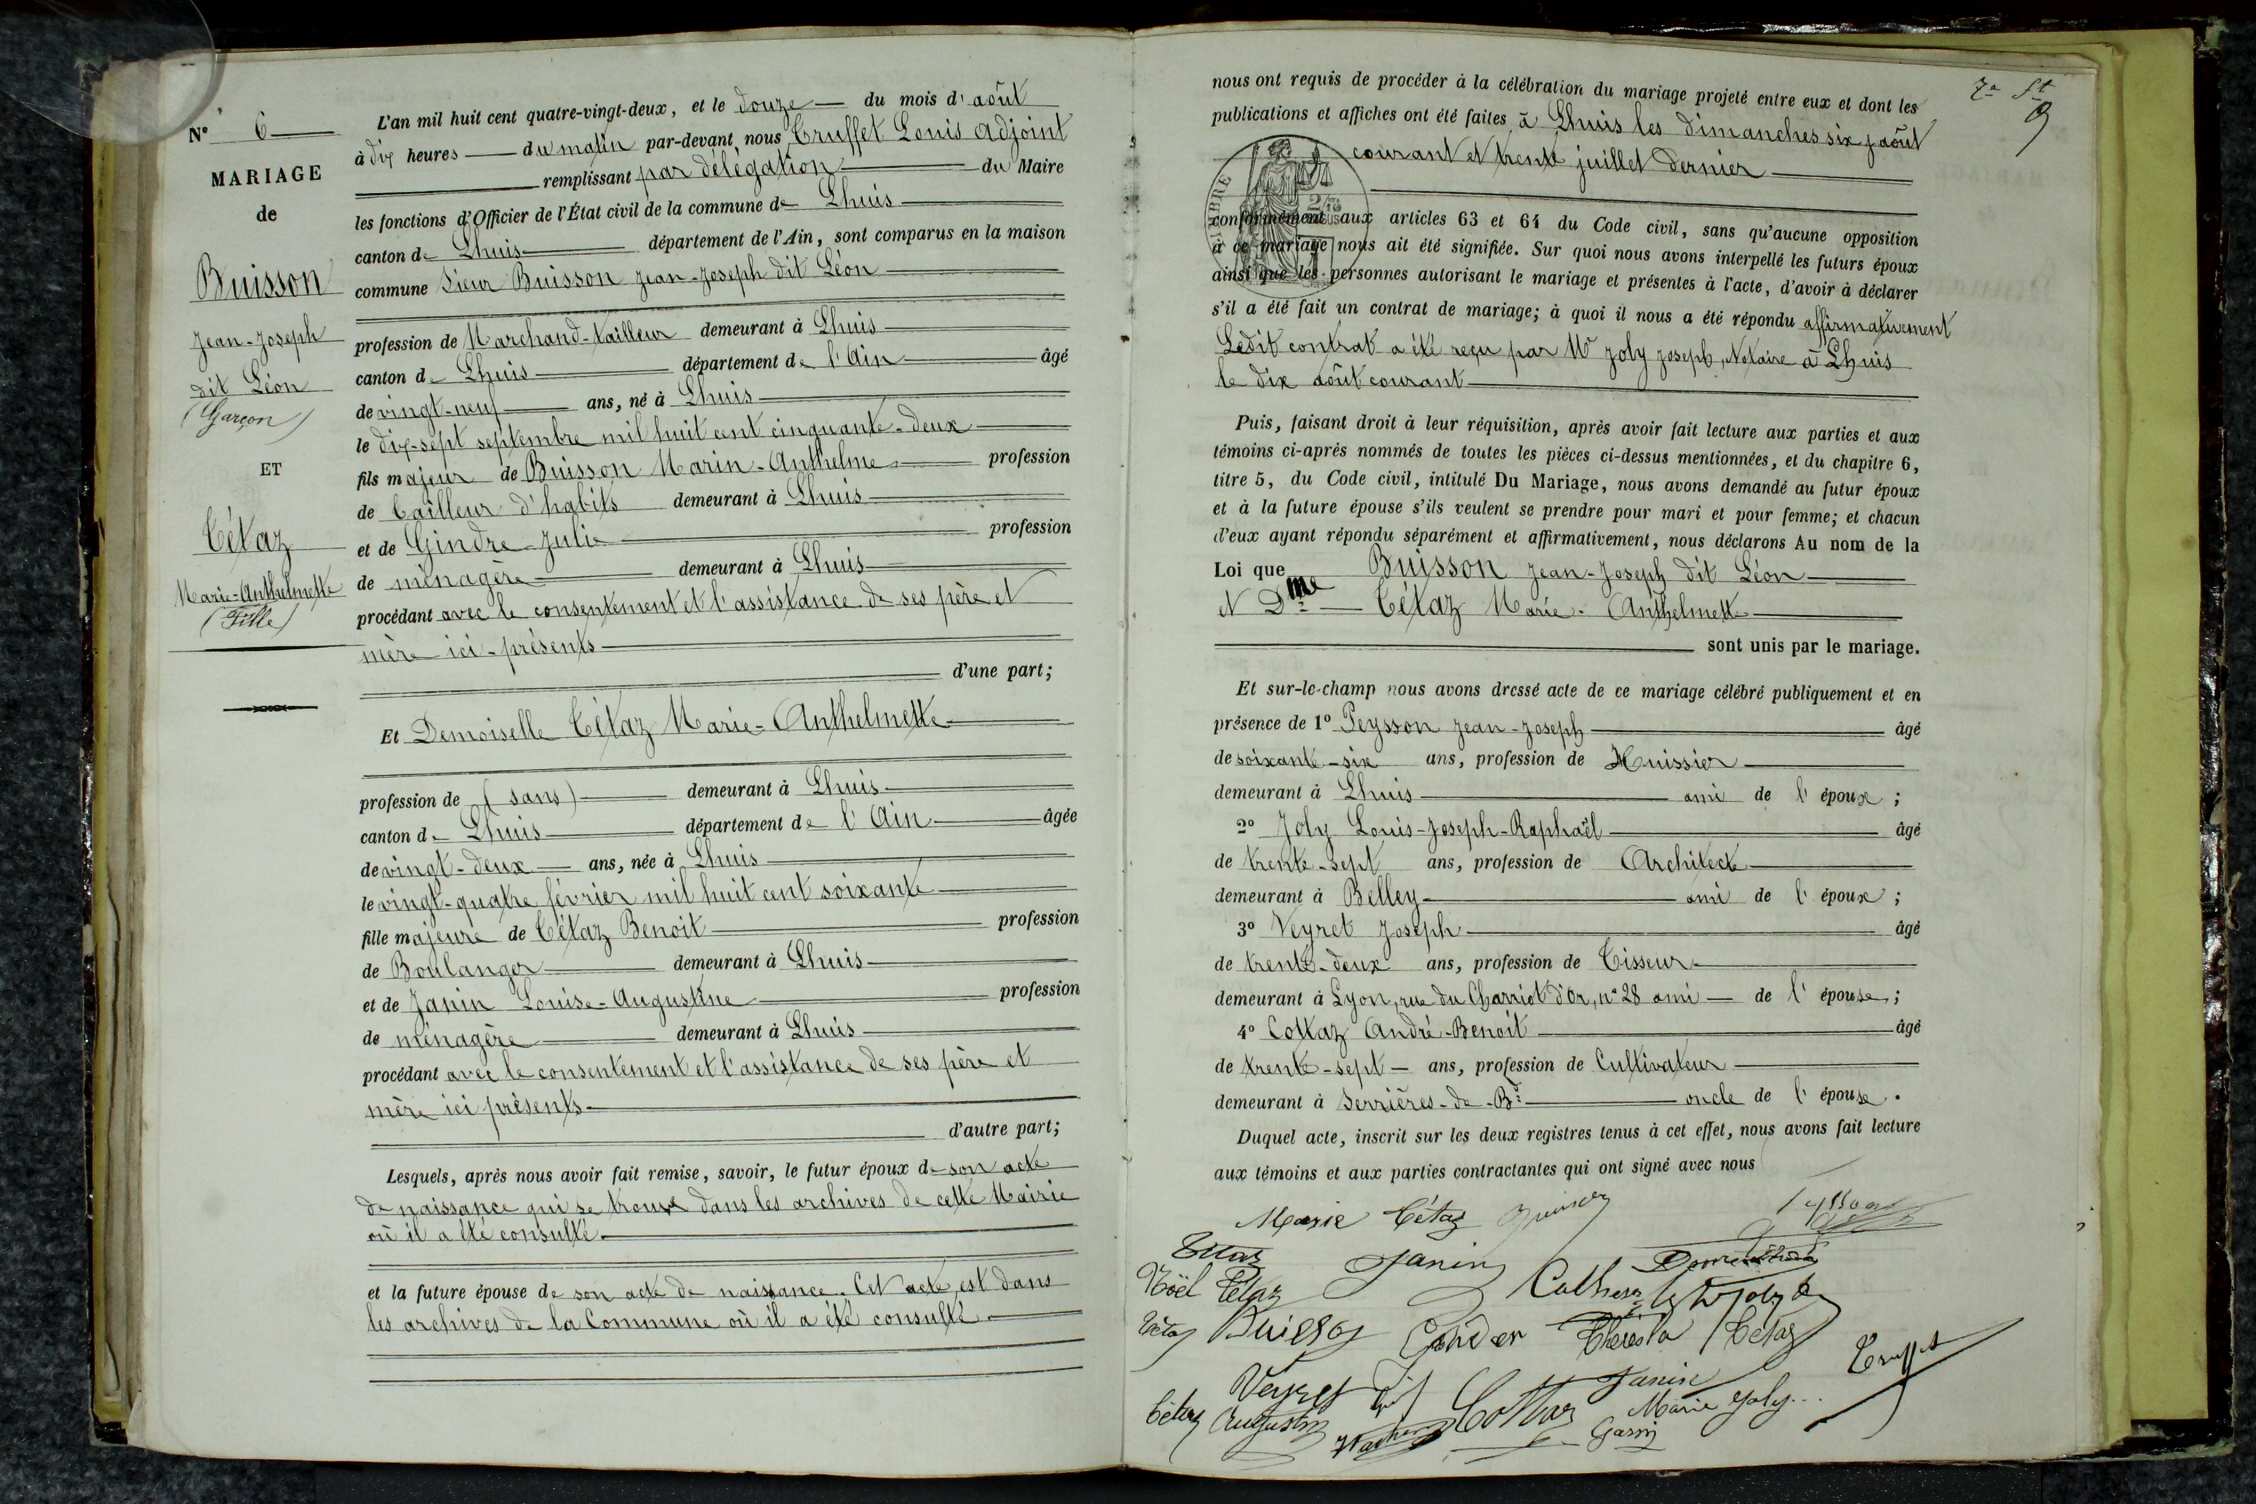 N° 6
MARIAGE
de
Buisson
Jean-Joseph
dit Léon
(Garçon)
ET
Tétaz
Marie-Anthelmette
(Fille)
L'an mil huit cent quatre-vingt-deux, et le douze du mois d'août
à dix heures du matin par-devant nous Truffet Louis adjoint
remplissant par délégation du Maire
les fonctions d'Officier de l'État civil de la commune de Lhuis
canton de Lhuis département de l'Ain, sont comparus en la maison
commune Sieur Buisson Jean-Joseph dit Léon
profession de Marchand-tailleur demeurant à Lhuis
canton de Lhuis département de l'Ain âgé
de vingt-neuf ans, né à Lhuis
le dix-sept septembre mil huit cent cinquante-deux
fils majeur de Buisson Marin-Anthelme profession
de Tailleur d'habits demeurant à Lhuis
et de Gindre Julie profession
de ménagère demeurant à Lhuis
procédant avec le consentement et l'assistance de ses père et
mère ici-présents
d'une part;
Et Demoiselle Tétaz Marie-Anthelmette
profession de (sans) demeurant à Lhuis
canton de Lhuis département de l'Ain âgée
de vingt-deux ans, née à Lhuis
le vingt-quatre février mil huit cent soixante
fille majeure de Tétaz Benoit profession
de Boulanger demeurant à Lhuis
et de Janin Louise-Augustine profession
de ménagère demeurant à Lhuis
procédant avec le consentement et l'assistance de ses père et
mère ici présents
d'autre part;
Lesquels, après nous avoir fait remise, savoir, le futur époux de son acte
de naissance qui se trouve dans les archives de cette Mairie
où il a été consulté
et la future épouse de son acte de naissance. Cet acte est dans
les archives de la Commune où il a été consulté
nous ont requis de procéder à la célébration du mariage projeté entre eux et dont les
publications et affiches ont été faites à Lhuis les dimanches six août
courant et trente juillet dernier
conformément aux articles 63 et 64 du Code civil, sans qu'aucune opposition
à ce mariage nous ait été signifiée. Sur quoi nous avons interpellé les futurs époux
ainsi que les personnes autorisant le mariage et présentes à l'acte, d'avoir à déclarer
s'il a été fait un contrat de mariage; à quoi il nous a été répondu affirmativement
Ledit contrat a été reçu par Me Joly Joseph, Notaire à Lhuis
le dix août courant
Puis, faisant droit à leur réquisition, après avoir fait lecture aux parties et aux
témoins ci-après nommés de toutes les pièces ci-dessus mentionnées, et du chapitre 6,
titre 5, du Code civil, intitulé Du Mariage, nous avons demandé au futur époux
et à la future épouse s'ils veulent se prendre pour mari et pour femme; et chacun
d'eux ayant répondu séparément et affirmativement, nous déclarons Au nom de la
Loi que Buisson Jean-Joseph dit Léon
et Dme Tétaz Marie-Anthelmette
sont unis par le mariage.
Et sur-le-champ nous avons dressé acte de ce mariage célébré publiquement et en
présence de 1° Peysson Jean-Joseph âgé
de soixante-six ans, profession de Huissier
demeurant à Lhuis ami de l'époux;
2° Joly Louis-Joseph-Raphaël âgé
de trente-sept ans, profession de Architecte
demeurant à Belley ami de l'époux;
3° Veyret Joseph âgé
de trente-deux ans, profession de Tisseur
demeurant à Lyon, rue du Charriot d'Or, n° 28 ami de l'épouse;
4° Cottaz André-Benoit âgé
de trente-sept ans, profession de Cultivateur
demeurant à Serrières-de-Bd oncle de l'épouse.
Duquel acte, inscrit sur les deux registres tenus à cet effet, nous avons fait lecture
aux témoins et aux parties contractantes qui ont signé avec nous
Marie Tétaz Buisson Peysson
Tétaz Janin
Noël Tétaz
Tétaz Buisson Tétaz
Veyret Cottaz Janin Truffet
Tétaz Augustin Marie Joly